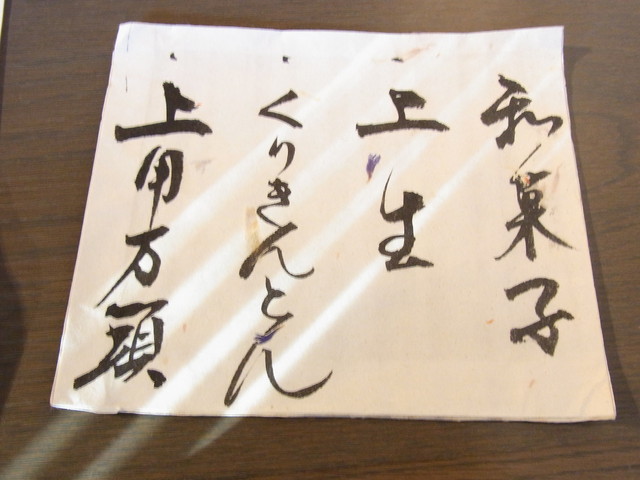 和菓子
・上生
・くりきんとん
・上用万頭